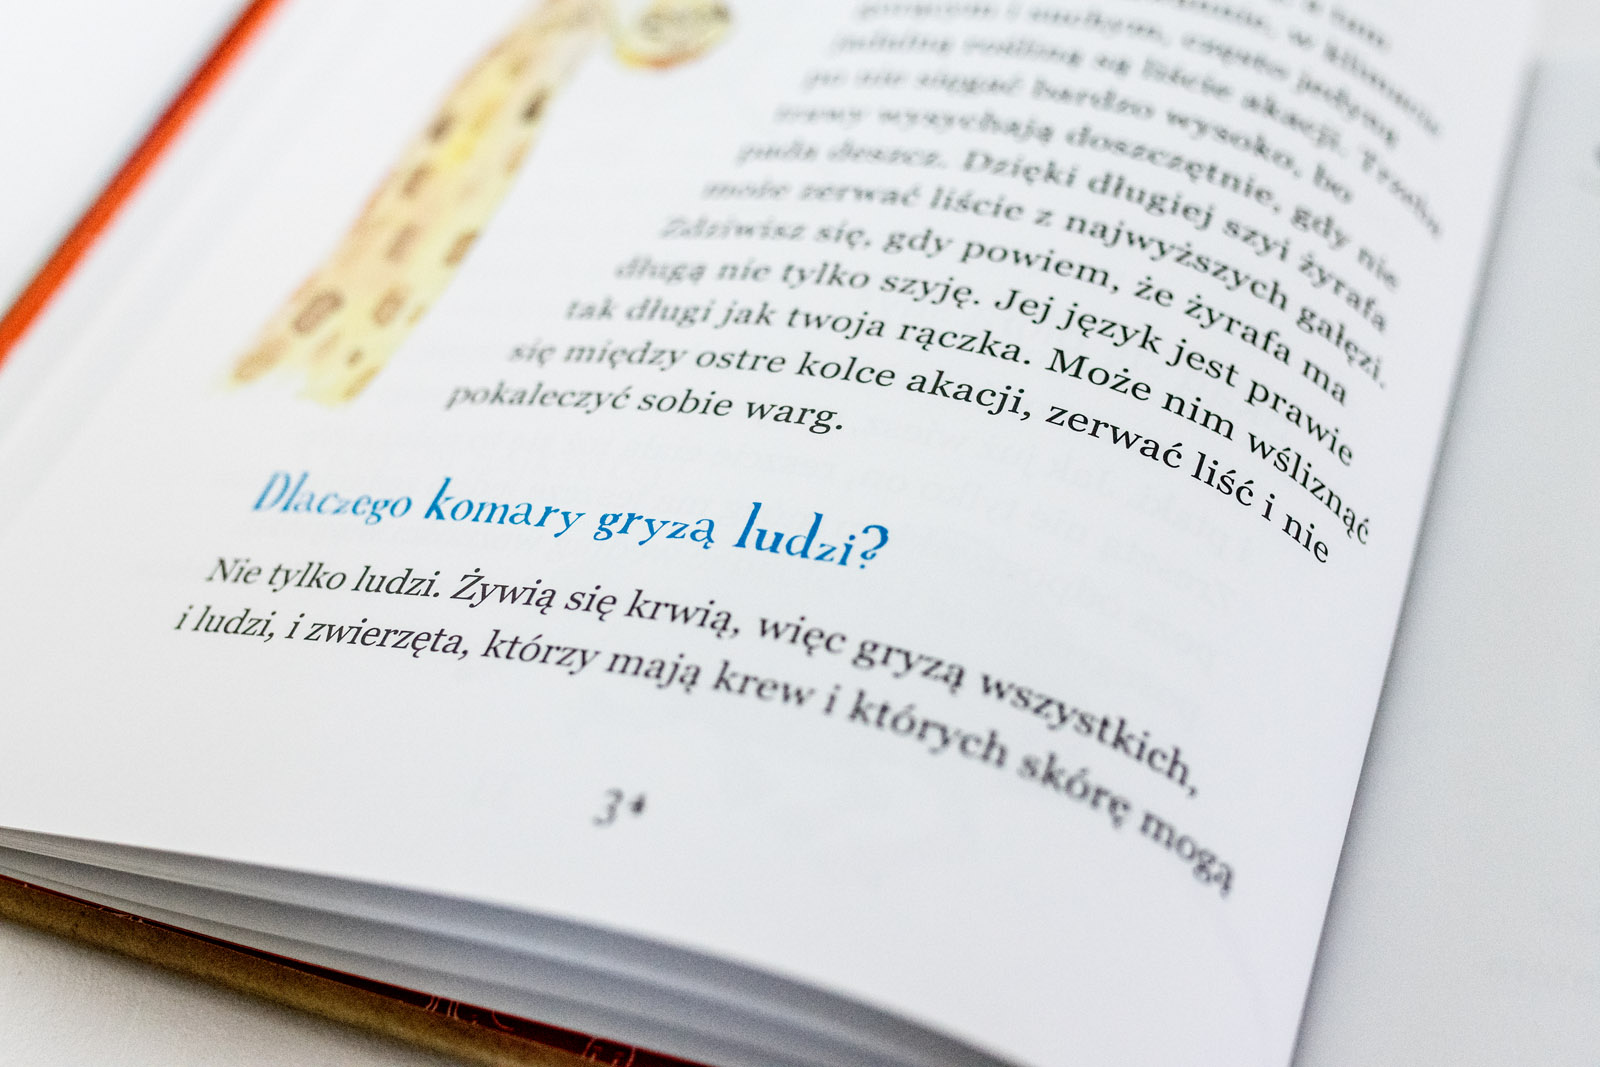 gorącym i suchym, często jedyną
jadalną rośliną są liście akacji. Trzeba
po nie sięgać bardzo wysoko, bo
trawy wysychają doszczętnie, gdy nie
pada deszcz. Dzięki długiej szyi żyrafa
może zerwać liście z najwyższych gałęzi.
Zdziwisz się, gdy powiem, że żyrafa ma
długą nie tylko szyję. Jej język jest prawie
tak długi jak twoja rączka. Może nim wśliznąć
się między ostre kolce akacji, zerwać liść i nie
pokaleczyć sobie warg.
Dlaczego komary gryzą ludzi?
Nie tylko ludzi. Żywią się krwią, więc gryzą wszystkich,
i ludzi, i zwierzęta, którzy mają krew i których skórę mogą
34